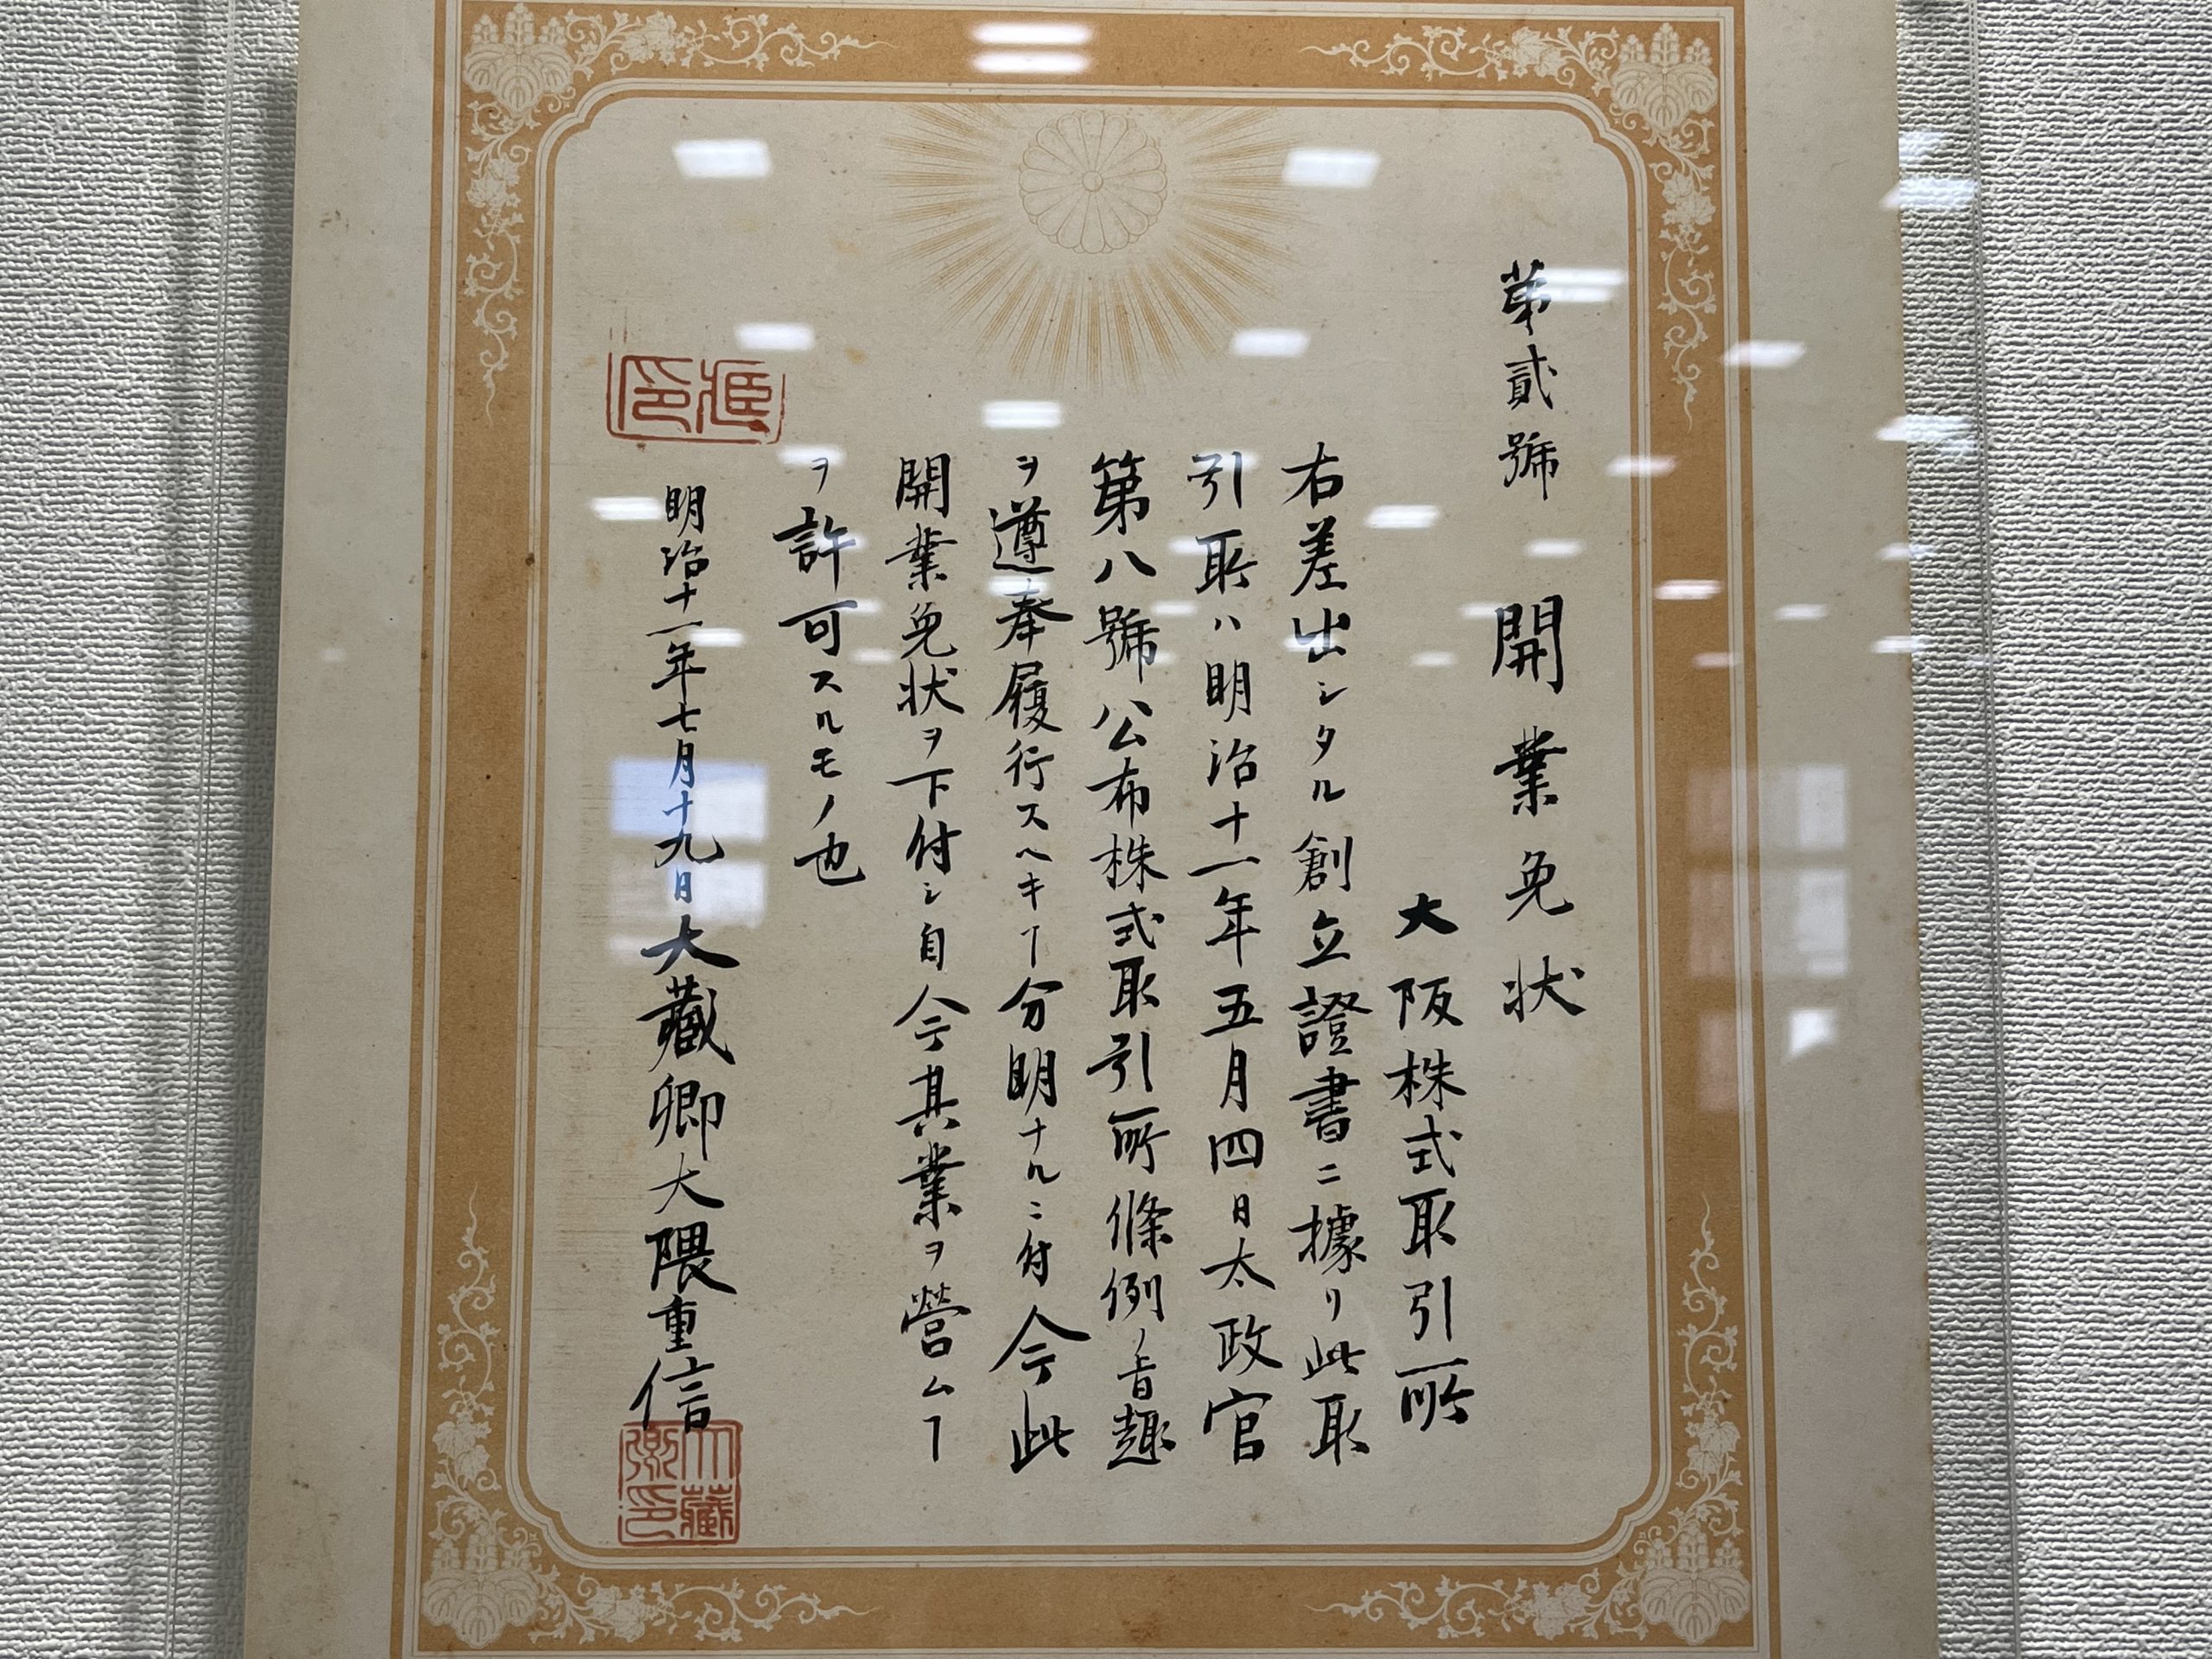 第貳號 開業免状
大阪株式取引所
右差出シタル創立證書ニ據リ此取
引取ハ明治十一年五月四日太政官
第八號公布株式取引所條例ノ旨趣
ヲ遵奉履行スヘキヿ分明ナルニ付今此
開業免状ヲ下付シ自今其業ヲ營ムヿ
ヲ許可スルモノ也
明治十一年七月十九日大藏卿大隈重信
大藏卿印